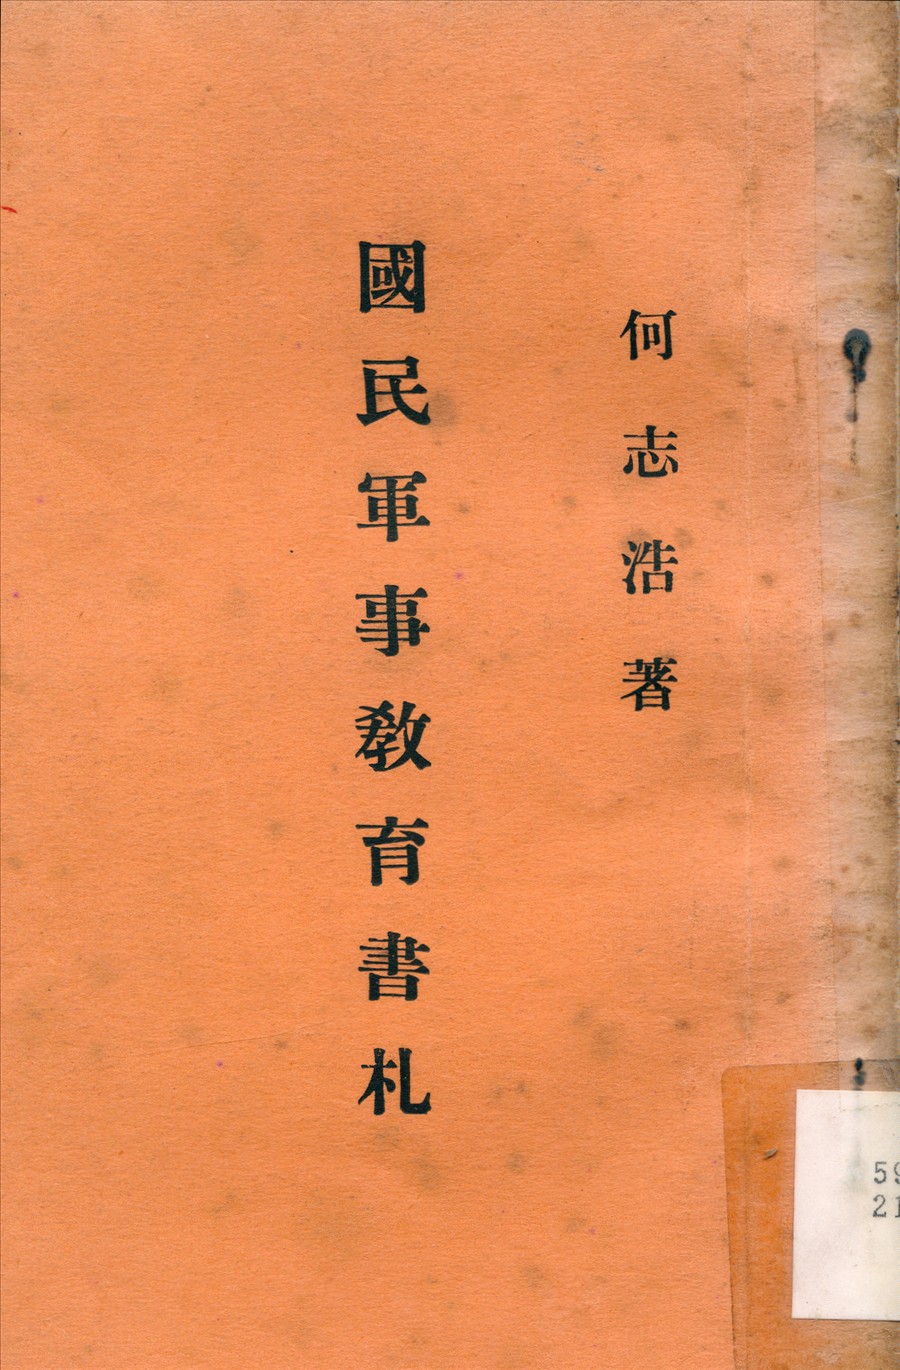 何志浩著
國民軍事敎育書札
59
21